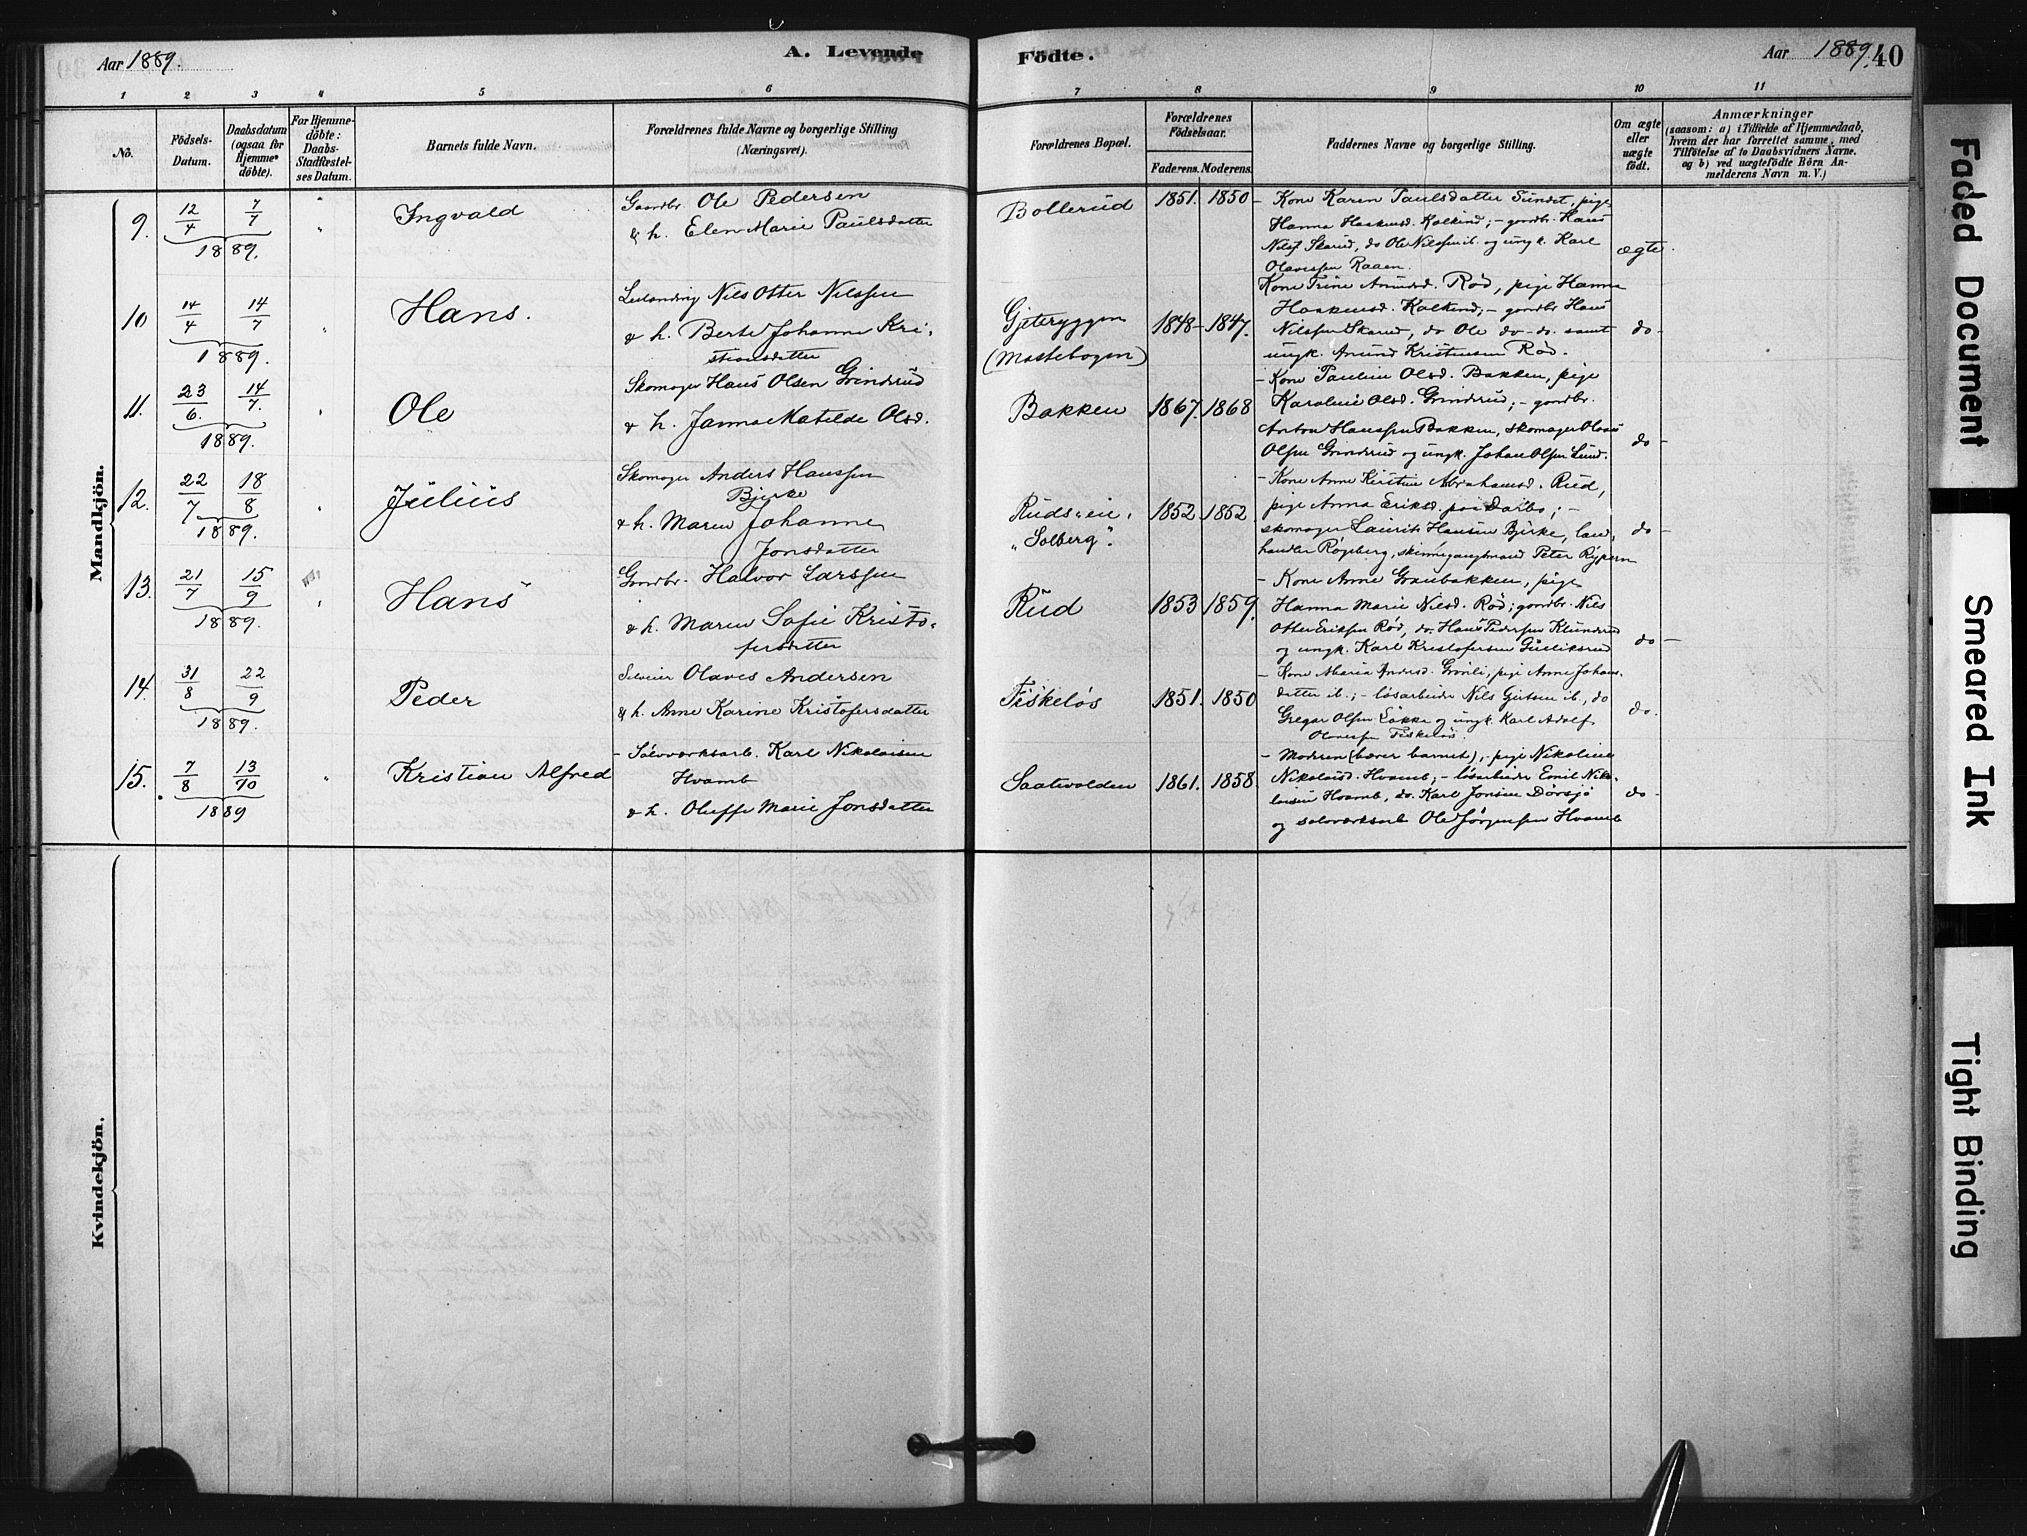 Aar 1889.
A. Levende
Födte.
Aar 1889.
40
1 2 3 4 5 6 7 8 9 10 11
No.
Födsels-
Datum.
Daabsdatum
(ogsaa för
Hjemme-
döbte).
For Hjemme-
döbte:
Daabs-
Stadfæstel-
ses Datum.
Barnets fulde Navn.
Forældrenes fulde Navne og borgerlige Stilling
(Næringsvei).
Forældrenes Bopæl.
Forældrenes
Födselsaar.
Faderens. Moderens.
Faddernes Navne og borgerlige Stilling.
Om ægte
eller
uægte
födt.
Anmærkninger
(saasom: a) i Tilfælde af Hjemmedaab,
hvem der har forrettet samme, med
Tilföielse af to Daabsvidners Navne.
og b) ved uægtefödte Börn An-
melderens Navn m. V.)
Mandkjön.
9. 12/4 7/7 1889.
Ingvald
Gaardbr. Ole Pedersen
& h. Elen Marie Paulsdatter
Bollerud
1851. 1850
- Kone Karen Paulsdatter Sundet, pige
Hanna Haakensd. Kolkind; - gaardbr. Hans
Nilsf Skarud, do Ole Nilssen ib. og ungk. Karl
Olavessen Raaen.
ægte
10 14/4 14/7 1889.
Hans.
Nils Otter Nilssen
& h. Berte Johanne Kri-
stiansdatter
Gjeteryggen
(Mastebogen)
1848 - 1847.
Kone Trine Amundsd. Rød, pige Hanna
Haakensd. Kolkind; - gaardbr Hans
Nilssen Skarud, do Ole do - do. samt
ungk. Amund Kristensen Rød.
do -
11. 23/6. 14/7. 1889.
Ole
Skomager Hans Olsen Grinderud
& h. Janna Matilde Olsd.
Bakken
1867. 1868
- Kone Pauline Olsd. Bakken, pige
Karoline Olsd. Grinderud; - gaardbr.
Anton Hanssen Bakken, skomager Olaus
Olsen Grinderud og ungk. Johan Olsen Lund.
do -
12. 22/7 18/8 1889.
Julius
Skomager Anders Hanssen
Bjerke
& h. Maren Johanne
Jonsdatter
Ruds-eie,
"Solberg".
1852 1852.
- Kone Anne Kirstine Abrahamsd. Rud,
pige Anna Eriksd. paa Darbo; -
skomager Laurits Hansen Bjerke, land-
handler Røgeberg, Peter Rypern
do -
13. 21/7 15/9 1889.
Hans
Gaardbr. Halvor Larssen
& h. Maren Sofie Kristo-
fersdatter
Rud
1853 1859.
- Kone Anne Granbakken, pige
Hanna Marie Nilsd. Rød; gaardbr. Nils
Otter Eriksen Rød, do. Hans Pedersen Klunderud
og ungk. Karl Kristofersen Gulliksrud
do -
14. 31/8 22/9 1889.
Peder
Selveier Olaves Andersen
& h. Anne Karine Kristofersdatter
Fiskeløs
1851. 1850
- Kone Maria Andersd. Grønli, pige Anne Johans-
datter ib.; - løsarbeider Nils ib., do
Gregar Olsen Løkka og ungk. Karl Adolf
Olavessen Fiskeløs.
do.
15. 7/8 13/10 1889
Kristian Alfred
- Sølvværksarb. Karl Nikolaisen
Hvamb
& h. Oluffe Marie Jonsdatter
Saatvolden
1861. 1858.
- Moderen (bærer barnet), - pige Nikoline
Nikolaisd. Hvamb; - løsarbeider Emil Niko-
laisen Hvamb, do. Karl Jonsen Dørsjø
og sølvværksarb Ole Jørgensen Hvamb
do -
Kvindekjön.
Faded Document
Smeared Ink
Tight Binding